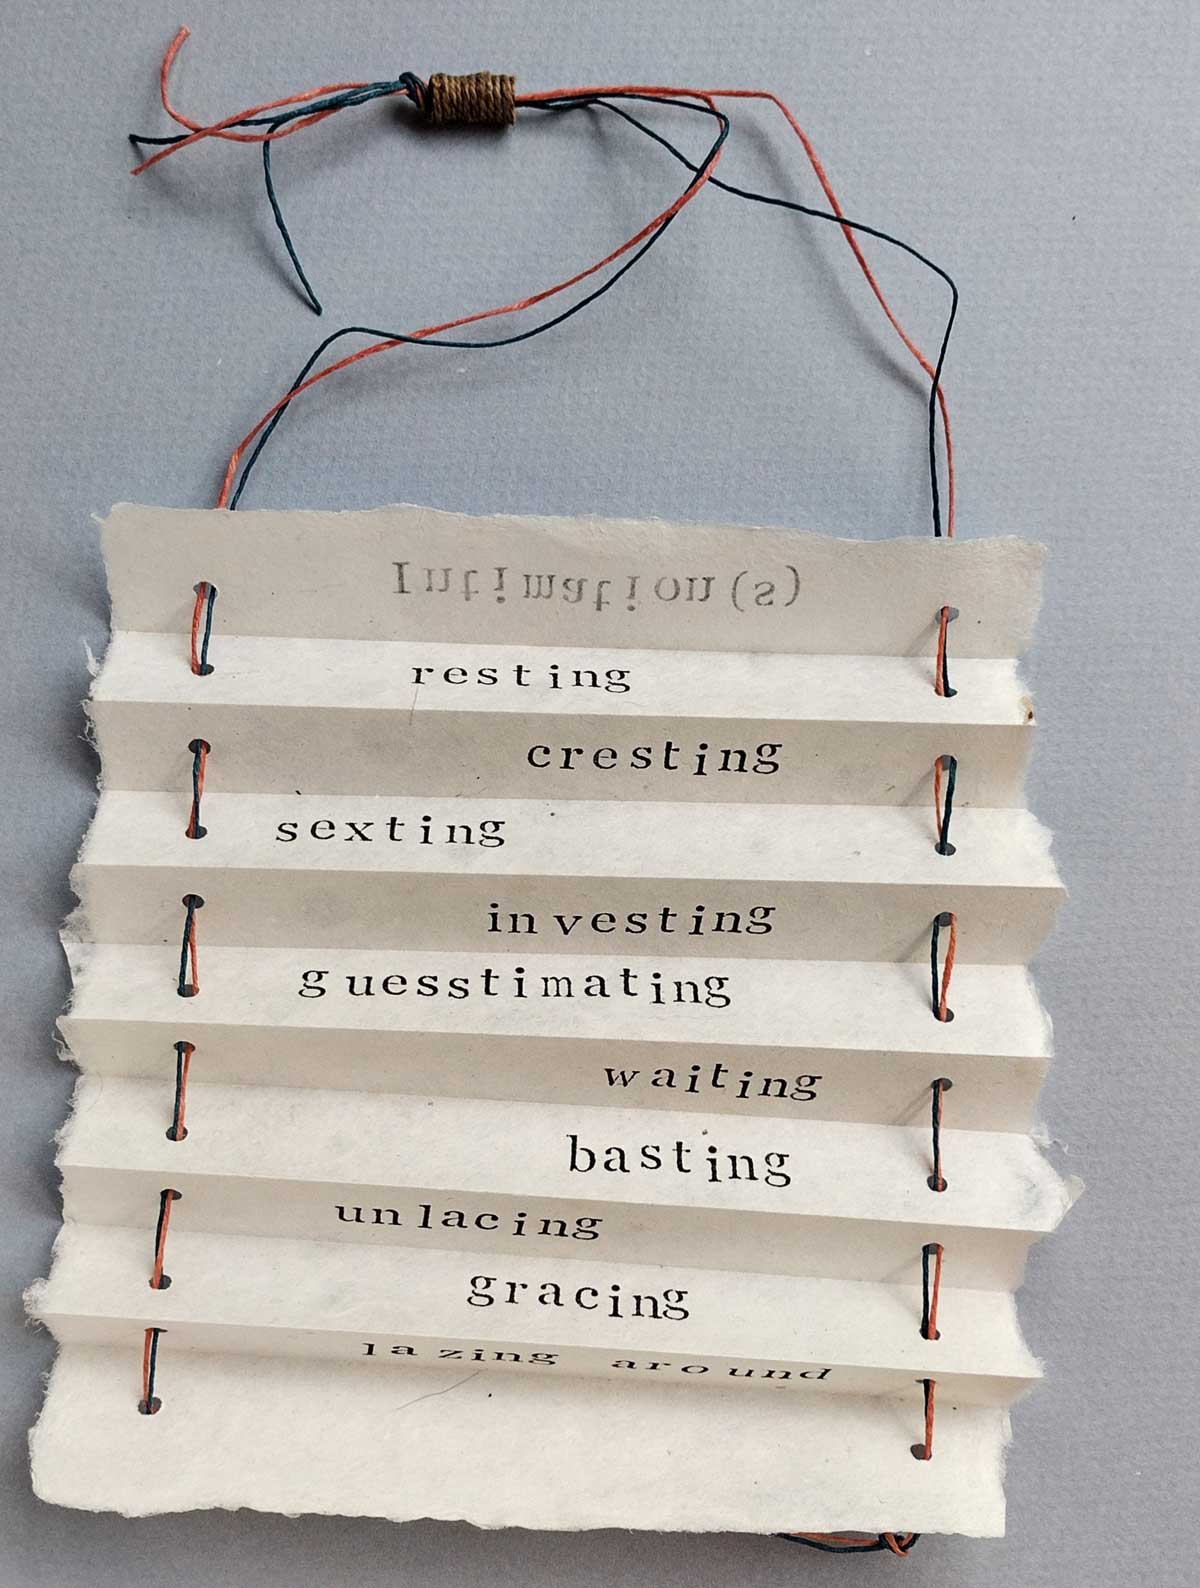 Intimation(s)
resting
cresting
sexting
investing
guesstimating
waiting
basting
unlacing
gracing
lazing around